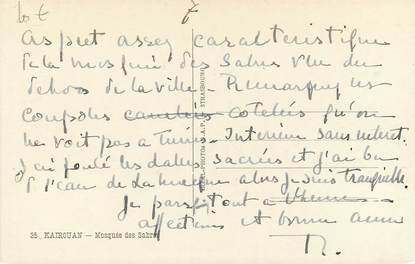 10 €
Aspect assez caractéristique
de la mosquée des Sabres vue du
dehors de la ville - Remarquez les
coupoles cotelées qu'on
ne voit pas a Tunis - Interieur sans interet.
J'ai foulé les dalles sacrées et j'ai bu
de l'eau de la mecque alors je suis tranquille
Je pars tout a l'heure
affections et bonne année
25 KAIROUAN - Mosquée des Sabres